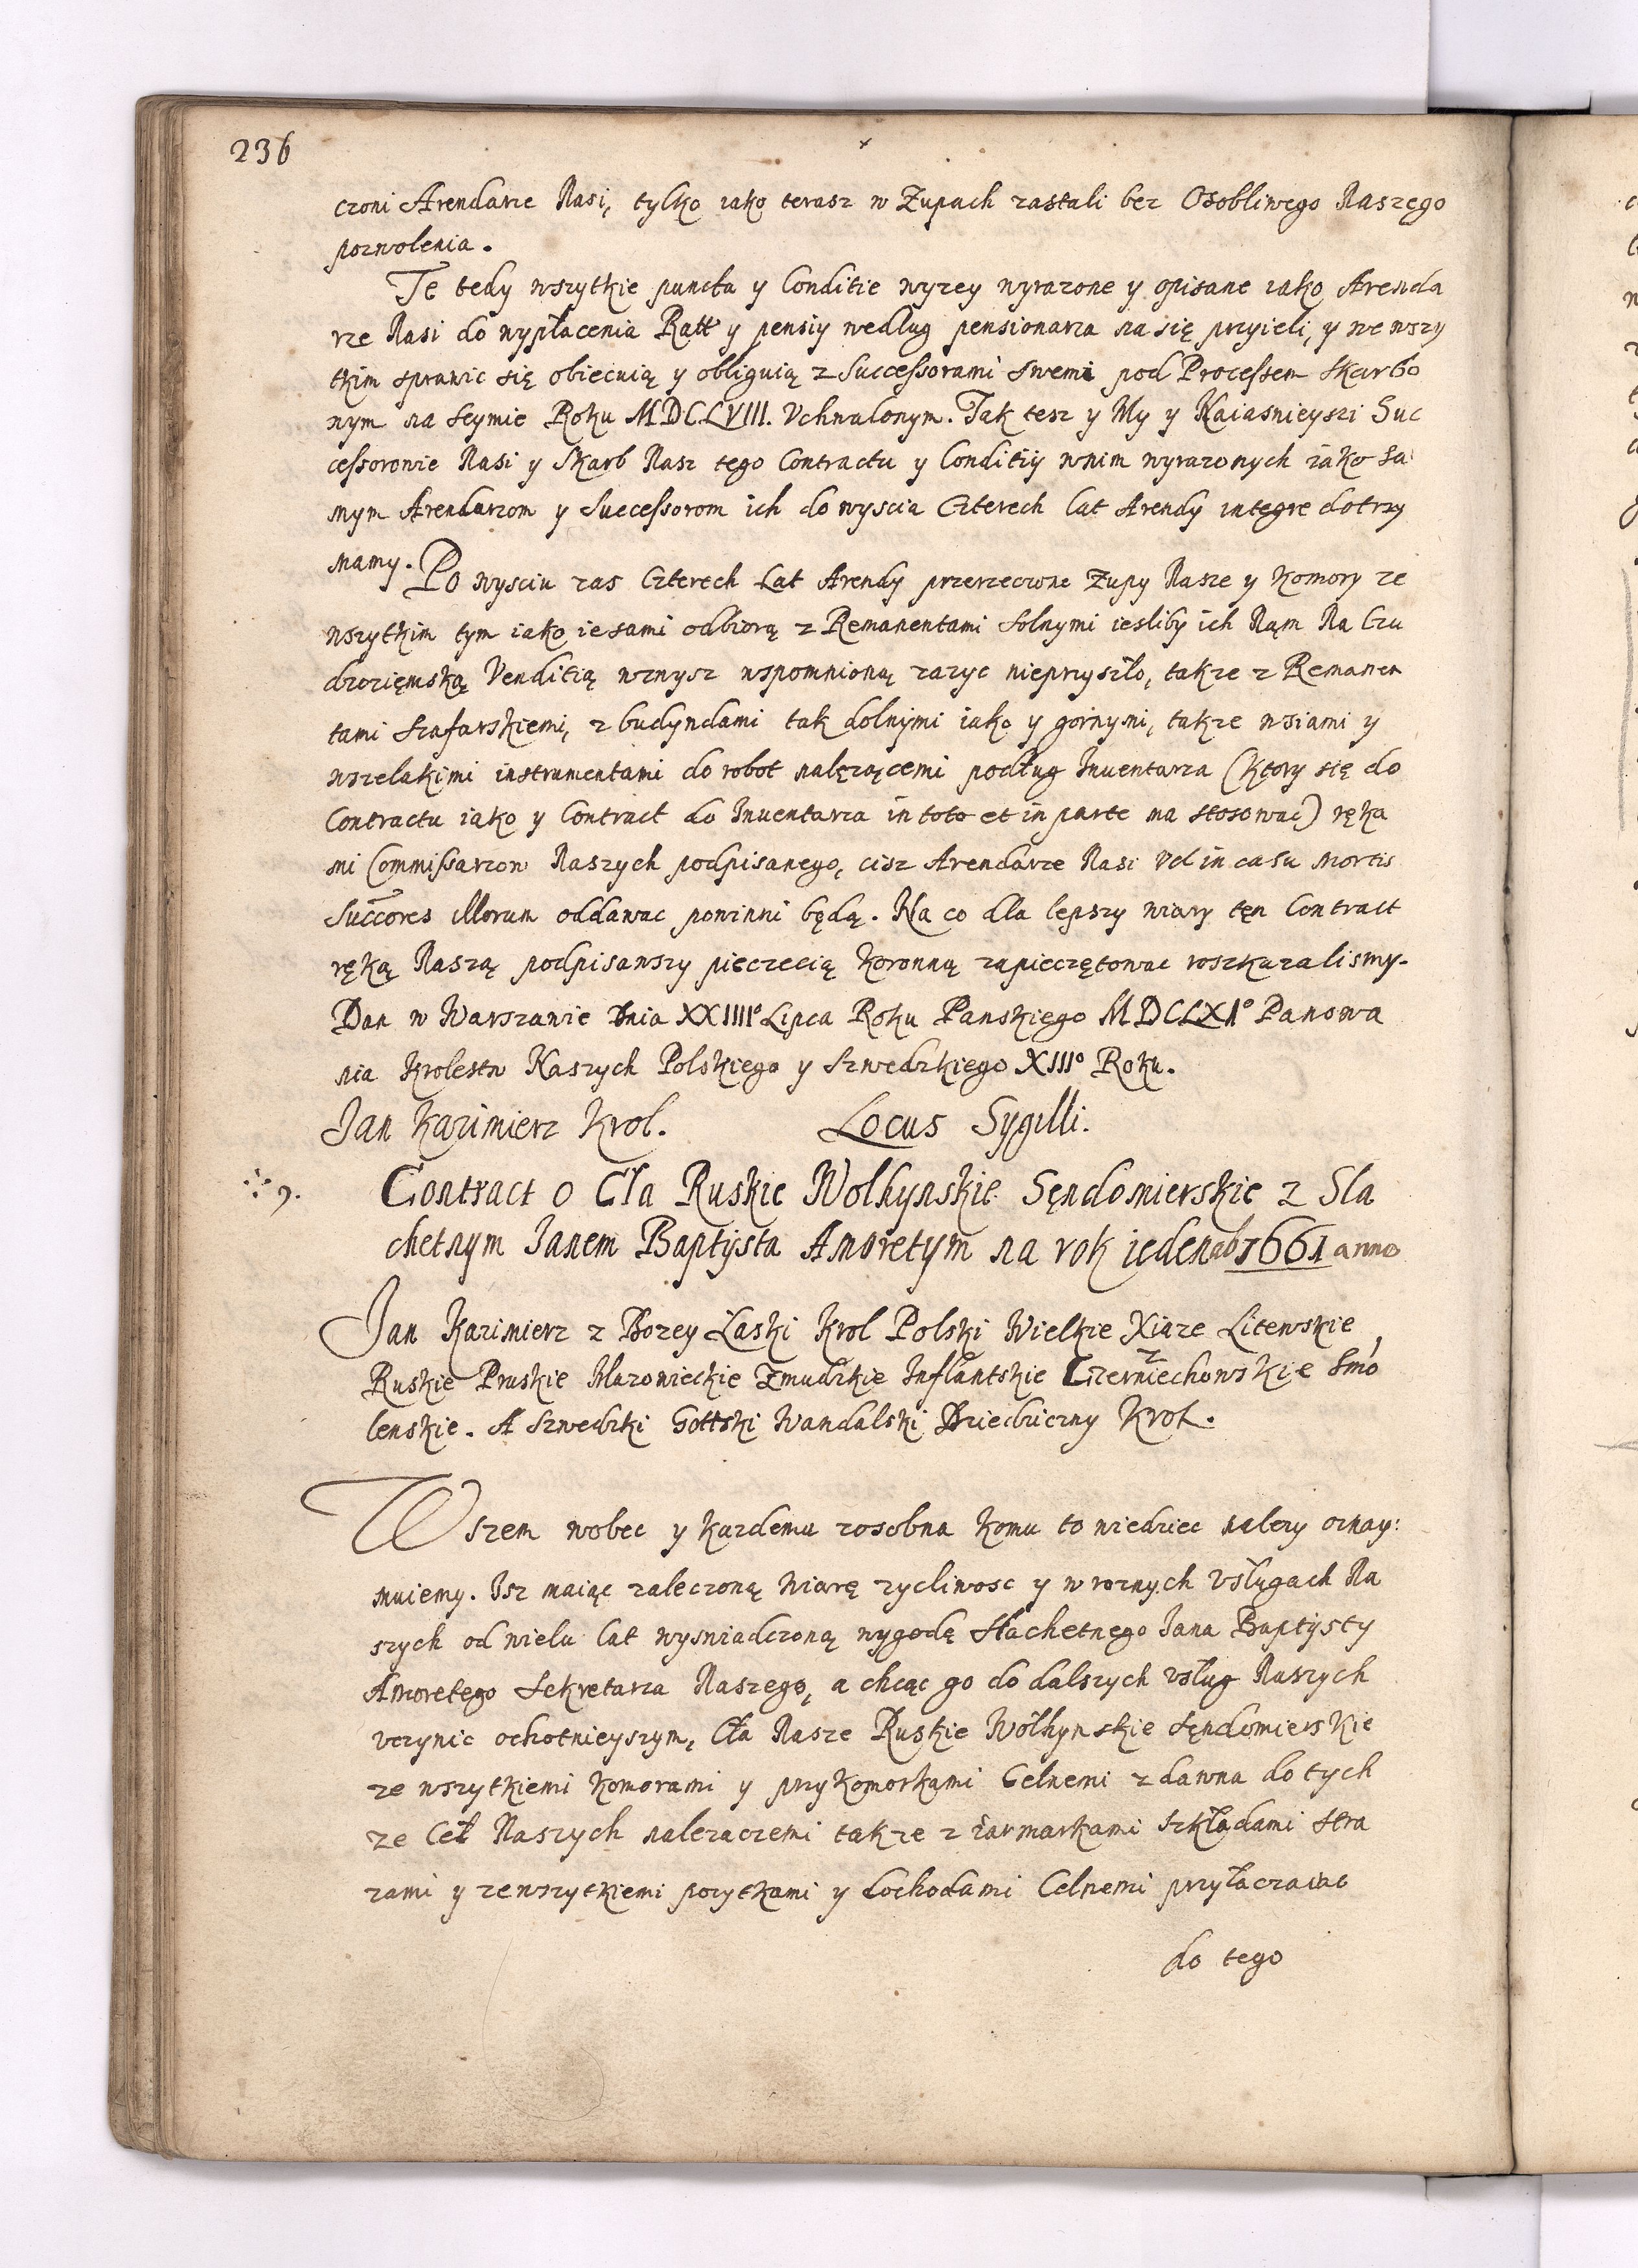 236
czoni Arendarze Nasi, tylko iako terasz w Zupach zastali bez Osobliwego Naszego
pozwolenia.
Te tedy wszytkie puncta y Conditie wyzey wyrazone y opisane iako Arenda
rze Nasi do wypłacenia Ratt y pensiy według pensionarza na się przyieli, y we wszy
tkim sprawic się obiecuią y obliguią z Successorami swemi pod Processem Skarbo
nym na Seymie Roku MDCLVIII. Vchwalonym. Tak tesz y My y Naiasnieyszi Suc
cessorowie Nasi y Skarb Nasz tego Contractu y Conditiy wnim wyrazonych iako sa
mym Arendarzom y Successorom ich do wyscia Czterech Lat Arendy integre dotrzy
mamy.
Po wysciu zas Czterech Lat Arendy przerzeczone Zupy Nasze y Komory ze
wszytkim tym iako ie sami odbiorą z Remanentami Solnymi iesliby ich Nąm Na Cu
dzozięmską Venditią wznysz wspomnioną zazyc nieprzyszło, takze z Remanen
tami Szafarskiemi, z budyndami tak dolnymi iako y gornymi, takze wsiami y
wszelakimi instrumentami do robot nalęząçemi podług Inuentarza (Ktory się do
Contractu iako y Contract do Inuentarza in toto et in parte ma stosowac) ręka
mi Commissarzow Naszych podpisanego, cisz Arendarze Nasi Vel in casu mortis
Succores illorum oddawac powinni będą. Na co dla lepszy wiary tęn Contract
ręką Naszą podpisawszy pieczecią Koronną zapieczętowac roszkazalismy.
Dan w Warszawie Dnia XXIIIIº Lipca Roku Panskiego MDCLXIº Panowa
nia Krolestw Naszych Polskiego y Szwedzkiego XIIIº Roku.
Jan Kazimierz Krol. Locus Sygilli.
9. Contract o Cła Ruskie Wolhynskie Sęndomierskie z Sla
chetnym Janem Baptysta Amoretym na rok ieden ab 1661 anno
Jan Kazimierz z Bozey Łaski Krol Polski Wielkie Xiąze Litewskie,
Ruskie Pruskie Mazowieckie Zmudzkie Inflantskie Czerniechowskie Smo
lenskie. A Szwedzki Gottski Wandalski Dziedziczny Krol.
Wszem wobec y Kazdemu zosobna Komu to wiedziec nalezy oznay:
muiemy. Isz maiąc zaleczoną Wiarę zycliwosc y w roznych Vsługach Na
szych od wielu lat wyswiadczoną wygodę Slachetnego Jana Baptysty
Amoretego Sekretarza Naszego, a chcąc go do dalszych vsług Naszych
vczynic ochotnieyszym, Cła Nasze Ruskie Wołhynskie Sęndomierskie
ze wszytkiemi Komorami y przykomorkami Celnemi zdawna do tych
ze Ceł Naszych nalezaczemi takze z iarmarkami Szkładami Stra
zami y ze wszytkiemi pozytkami y dochodami Celnemi przyłaczaiac
do tego